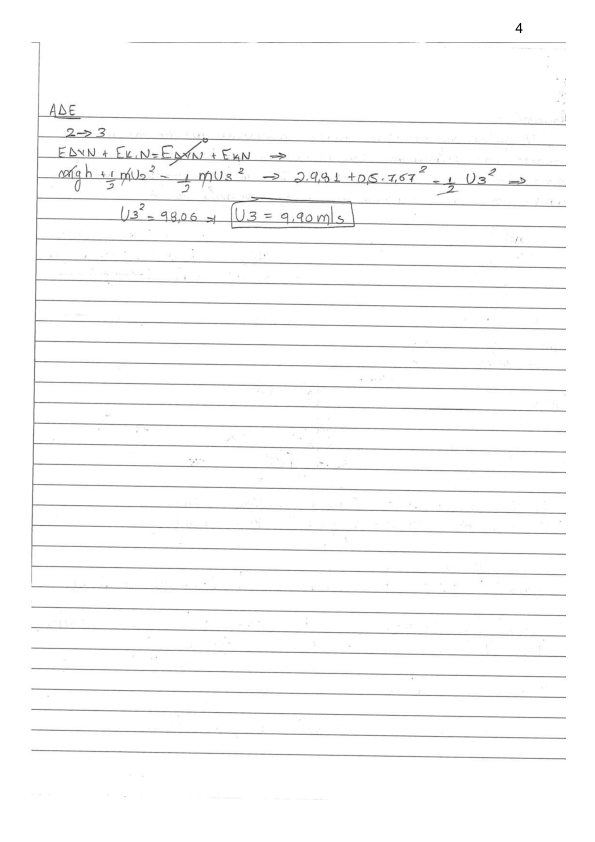 4
ΑΔΕ
2→3
ΕΔΥΝ + ΕΚΙΝ = ΕΔΥΝ⁰ + ΕΚΙΝ ⇒
mgh + 1/2 mU2² = 1/2 mU3² ⇒ 2.9,81 + 0,5 · 7,67² = 1/2 U3² ⇒
U3² = 98,06 ⇒ U3 = 9,90 m/s